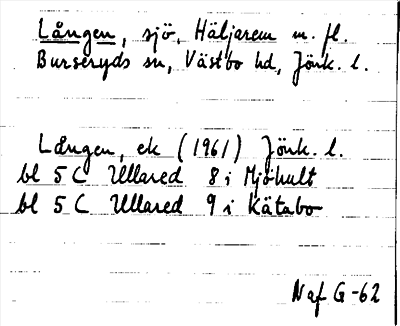 Lången, sjö, Häljarem m. fl.
Burseryds sn, Västbo hd, Jönk. l.
Lången, ek (1961) Jönk. l.
bl 5 C Ullared 8 i Mjöhult
bl 5 C Ullared 9 i Kätabo
Naf G-62